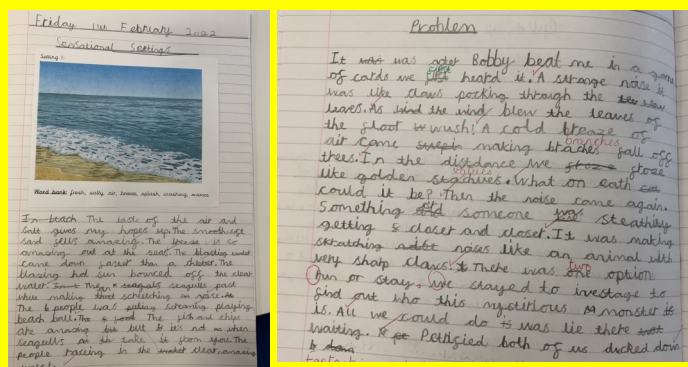 Friday 11th February 2022
Sensational Settings
Setting 1:
Word bank: fresh, salty, air, breeze, splash, crashing, waves
In beach The taste of the air and
salt gives my hopes up. The smoothest
sand feels amazing. The breeze is so
amazing out at the seas. The blasting wind
came down faster than a
blazing hot sun bounced off the clear
water. seagulls seagulls past
while making that schierching noise.
The people was screaming playing
beach ball. The food The fish and chips
are amazing but but it's not when
seagulls take it from you. The
people raceing in the clear, amazing
Problem
It was was Bobby beat me in a game
of cards we first heard it. A strange noise it
was like claws pocking through the
leaves. As wind the wind blew the leaves of
the floor wush! A cold breaze of
branches
air came swept making braches fall off
trees. In the distdance we froze froze
statues
like golden stachues. What on eath
could it be? Then the noise came again.
Something someone was steathily
getting closer and closer. It was making
skratching noises like an animal with
two
very sharp claws. There was one option
Run or stay. We stayed to investage to
find out who this mystirious monster is
is. All we could do is was lie there
waiting. Pettified both of us ducked down